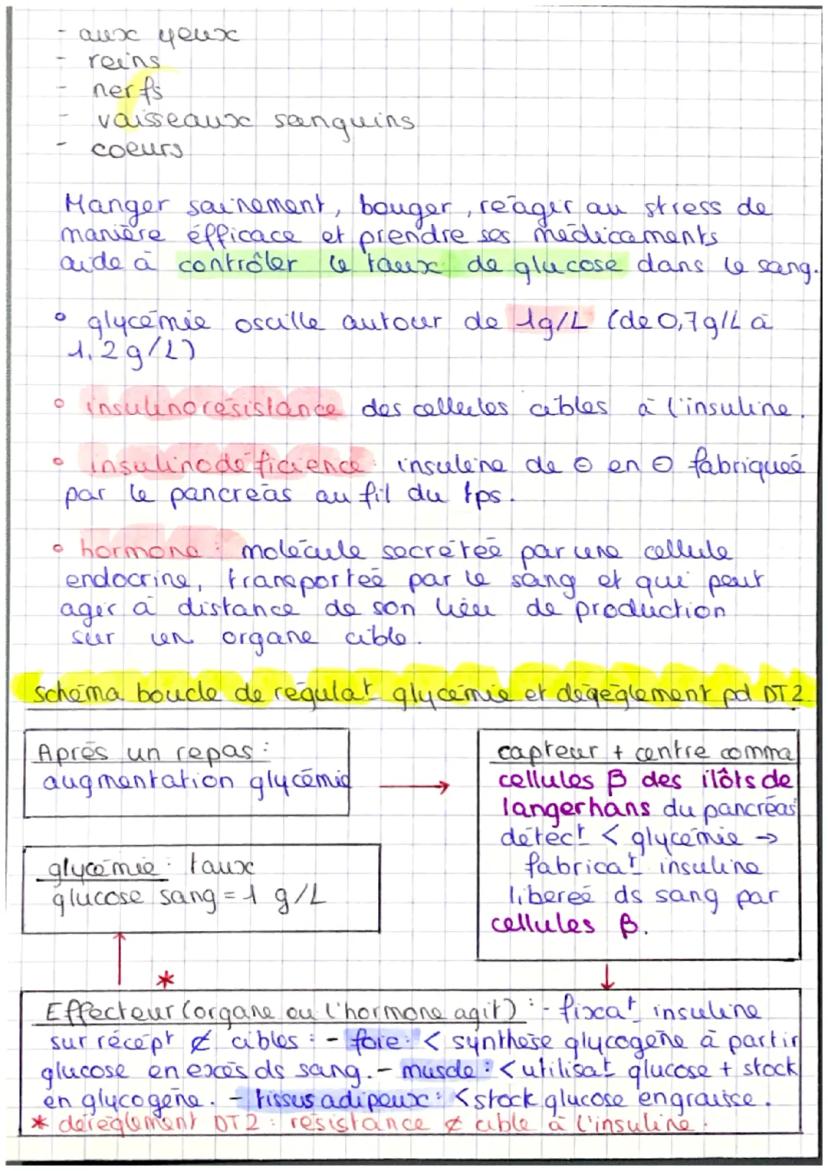 - aux yeux
- reins
- nerfs
- vaisseaux sanguins
- coeurs
Manger sainement, bouger, réagir au stress de
manière éfficace et prendre ses médicaments
aide à contrôler le taux de glucose dans le sang.
° glycémie oscille autour de 1g/L (de 0,7g/L à
1,2g/L)
° insulinorésistance des cellules cibles à l'insuline.
° insulinodéficience : insuline de ⊖ en ⊖ fabriqueé
par le pancréas au fil du tps.
° hormone : molécule secrétée par une cellule
endocrine, transportée par le sang et qui peut
agir à distance de son lieu de production
sur un organe cible.
schéma boucle de régulat° glycémie et dérèglement pd DT2
Après un repas :
augmentation glycémie
capteur + centre comma
cellules β des ilôts de
langerhans du pancréas
détect° < glycémie →
fabricat° insuline
libereé ds sang par
cellules β.
glycémie : taux
glucose sang = 1 g/L
*
Effecteur (organe ou l'hormone agit) : - fixat° insuline
sur récépt ¢ cibles : - foie : < synthèse glycogène à partir
glucose en excès ds sang. - muscle : < utilisat° glucose + stock
en glycogène. - tissus adipeux : < stock glucose en graisse.
* dérèglement DT2 : résistance ¢ cible à l'insuline.